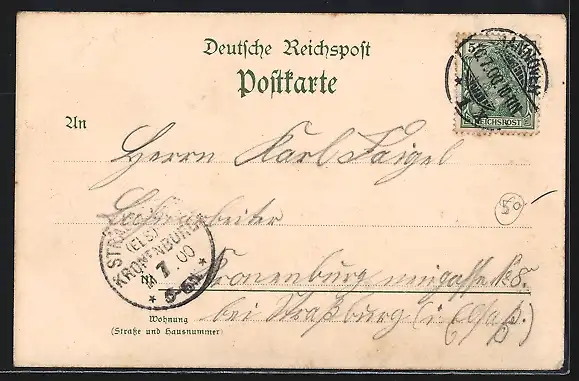 Deutsche Reichspost
Postkarte
5
REICHSPOST
HANNOVER
An
Herrn Karl Faigel
Lederarbeiter
STRASSBURG
(ELS)
KRONENBURG
7 00
Kronenburg neugasse No 8.
bei Straßburg (i/Elsaß)
50
Wohnung
(Straße und Hausnummer)